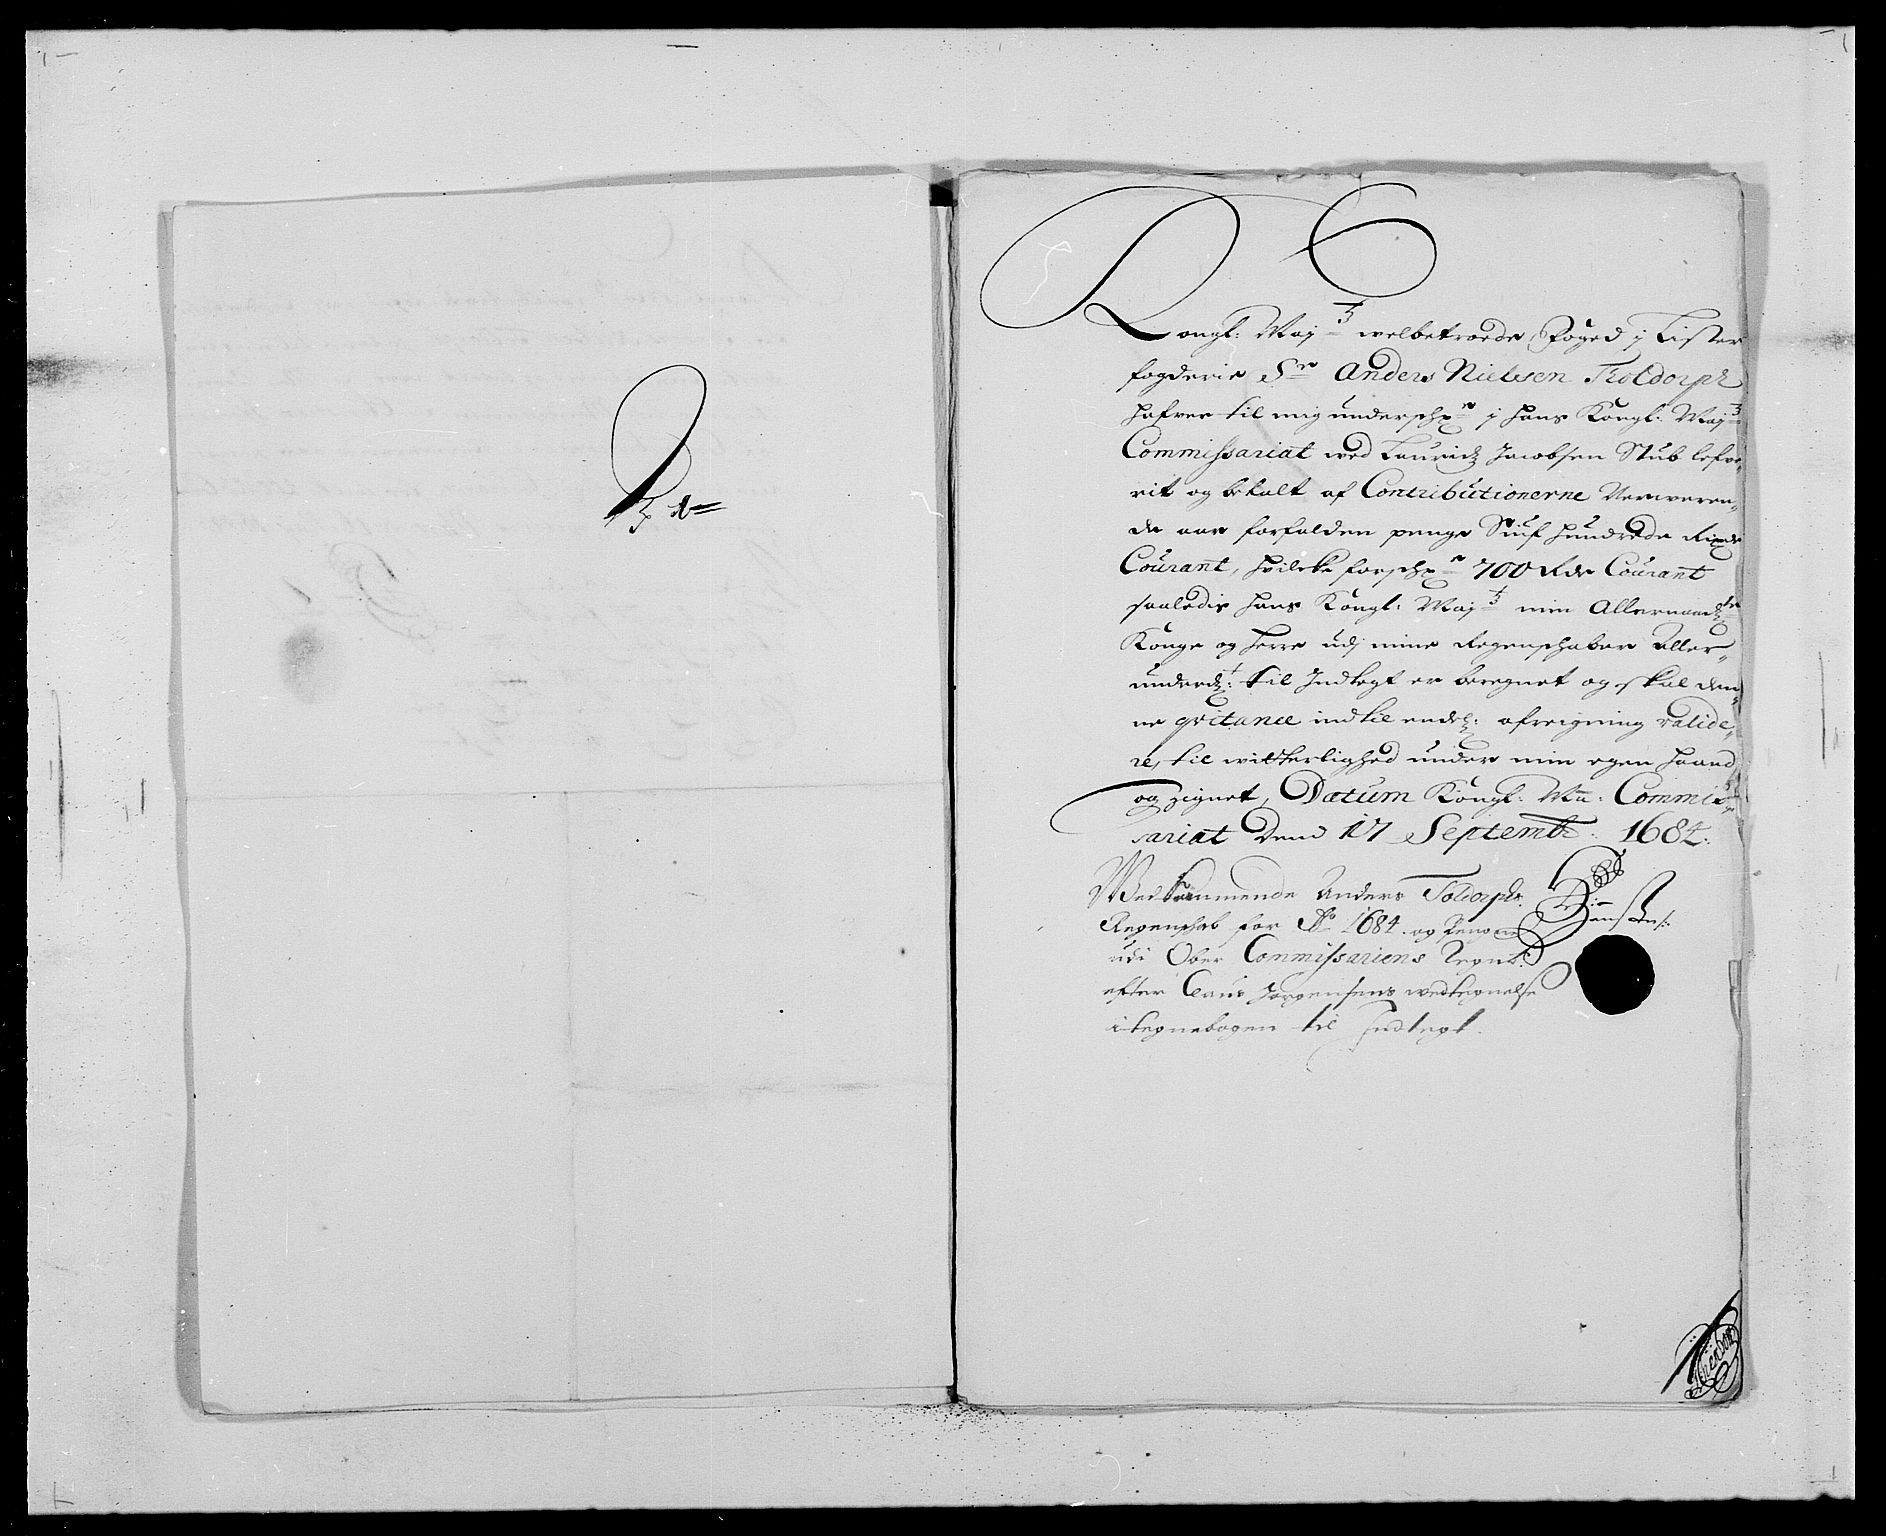 Kongl: Maj:ts welbetroede Foged j Lister
fogderie Sr Anders Nielssen Toldorph
hafver til mig underschr: j Hans Kongl: Majts
Commissariat wed Lauridz Jacobsen Stub lefve„
rit og betalt af Contributionerne Nerweren„
de aar forfalden penge Siuf hundrede Rixdr
Courant, hvilcke forschr: 700 Rdr Courant
saaledis hans Kongl: Majts min Allernaadste
Konge og Herre udj mine Regenschaber Aller„
underdt: til Indtegt er beregnet og skal den„
ne qvitance indtil endel: afreigning valide„
re, til witterlighed under min egen haand
og zignet, Datum Kongl: Ma: Commis„
sariat Dend 17 Septembr. 1684.
Wedkommende Anders Toldorphs
Regenschab for Ao 1684. og
udi Ober Commissariens Regns:
efter Claus Jørgensens wedtegnelse
i tegnebogen til Indtegt.